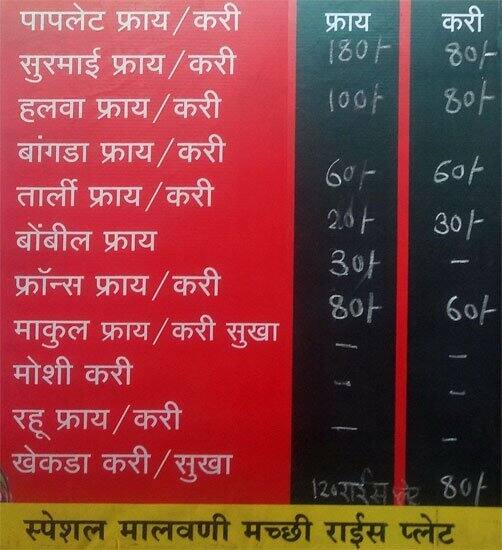 पापलेट फ्राय/करी फ्राय करी
सुरमाई फ्राय/करी 180/- 80/-
हलवा फ्राय/करी 100/- 80/-
बांगडा फ्राय/करी 60/- 60/-
तार्ली फ्राय/करी 20/- 30/-
बोंबील फ्राय 30/- –
फ्रॉन्स फ्राय/करी 80/- 60/-
माकुल फ्राय/करी सुखा – –
मोशी करी – –
रहू फ्राय/करी – –
खेकडा करी/सुखा 120 राईस 80/-
स्पेशल मालवणी मच्छी राईस प्लेट